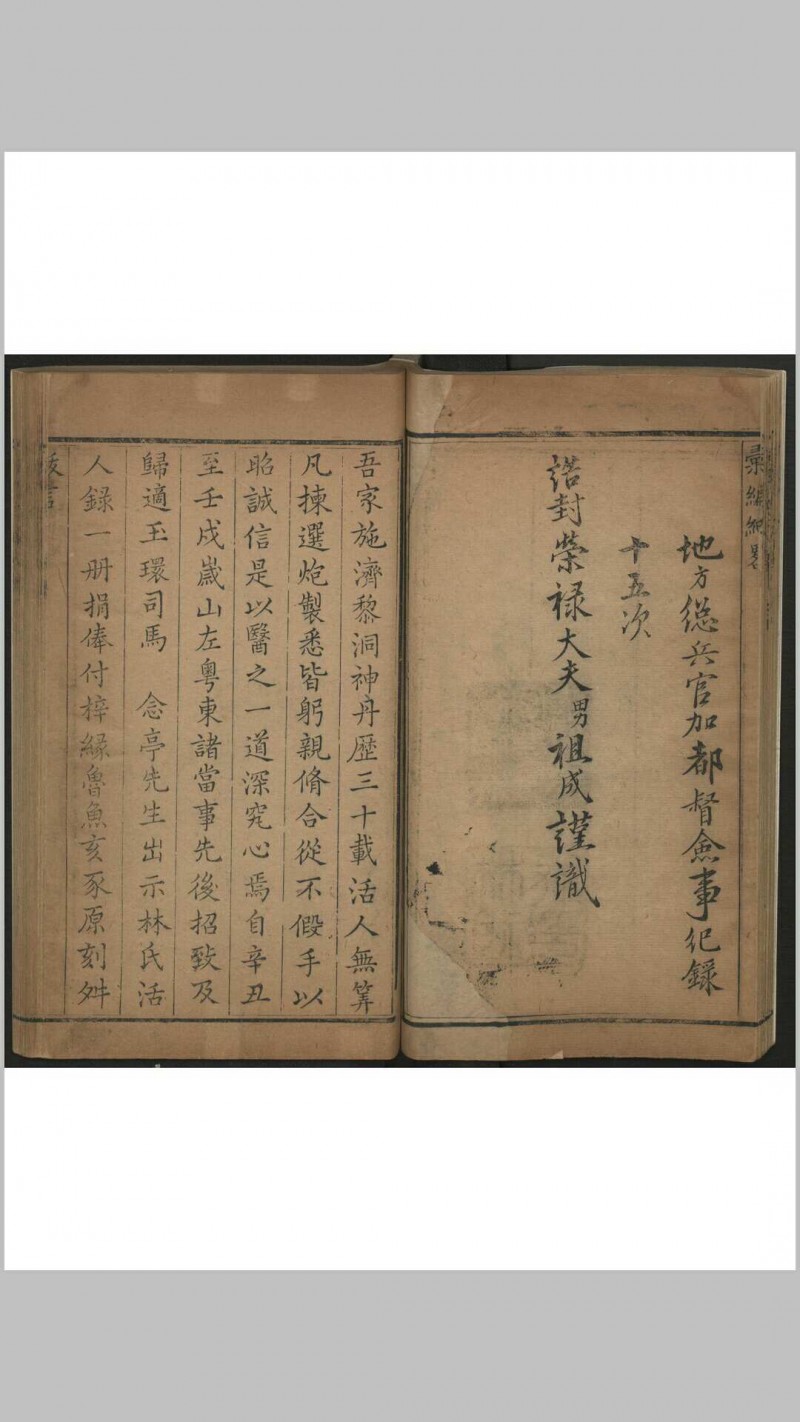 彙編紀畧
地方總兵官加都督僉事紀錄
十五次
誥封榮祿大夫男祖成謹識
吾家施濟黎洞神丹歷三十載活人無筭
凡揀選炮製悉皆躬親脩合從不假手以
昭誠信是以醫之一道深究心焉自辛丑
至壬戌嵗山左粵東諸當事先後招致及
歸適玉環司馬 念亭先生出示林氏活
人錄一册捐俸付梓緣魯魚亥豕原刻舛